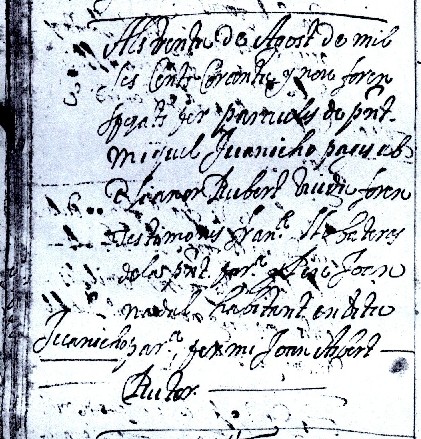 Als trenta de Agost de mil
sis cents coranta y nou foren
sposats per paraules de pnt.
Miquel Juanicho pages ab
Elianor Rubert viuda foren
testimonis fran.ch
de la pnt par.a y Pere Joan
nadal habitant en dita
Juanicho par.a, per mi Joan Albert
Rector